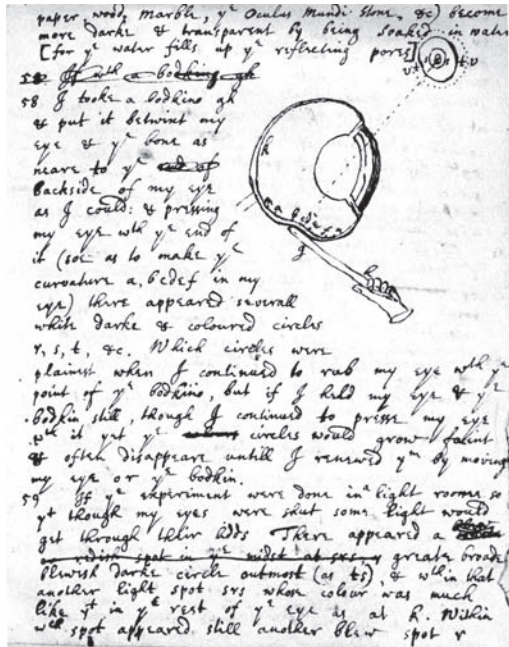 paper, wood, marble, yᵉ Oculus Mundi Stone, &c) become
more darke & transparent by being soaked in water
[for yᵉ water fills up yᵉ reflecting pores]
58 I tooke a bodkine gh
& put it betwixt my
eye & yᵉ bone as
neare to yᵉ
backside of my eye
as I could: & pressing
my eye wᵗʰ yᵉ end of
it (soe as to make yᵉ
curvature a, bcdef in my
eye) there appeared severall
white darke & coloured circles
r, s, t, &c. Which circles were
plainest when I continued to rub my eye wᵗʰ yᵉ
point of yᵉ bodkine, but if I held my eye & yᵉ
bodkin still, though I continued to presse my eye
wᵗʰ it yet yᵉ circles would grow faint
& often disappeare untill I renewed yᵐ by moving
my eye or yᵉ bodkin.
59 If yᵉ experiment were done in a light roome so
yᵗ though my eyes were shut some light would
get through their lidds There appeared a
greate broade
blewish darke circle outmost (as ts), & wᵗʰin that
another light spot srs whose colour was much
like yᵗ in yᵉ rest of yᵉ eye as at k. Within
wᶜʰ spot appeared still another blew spot r